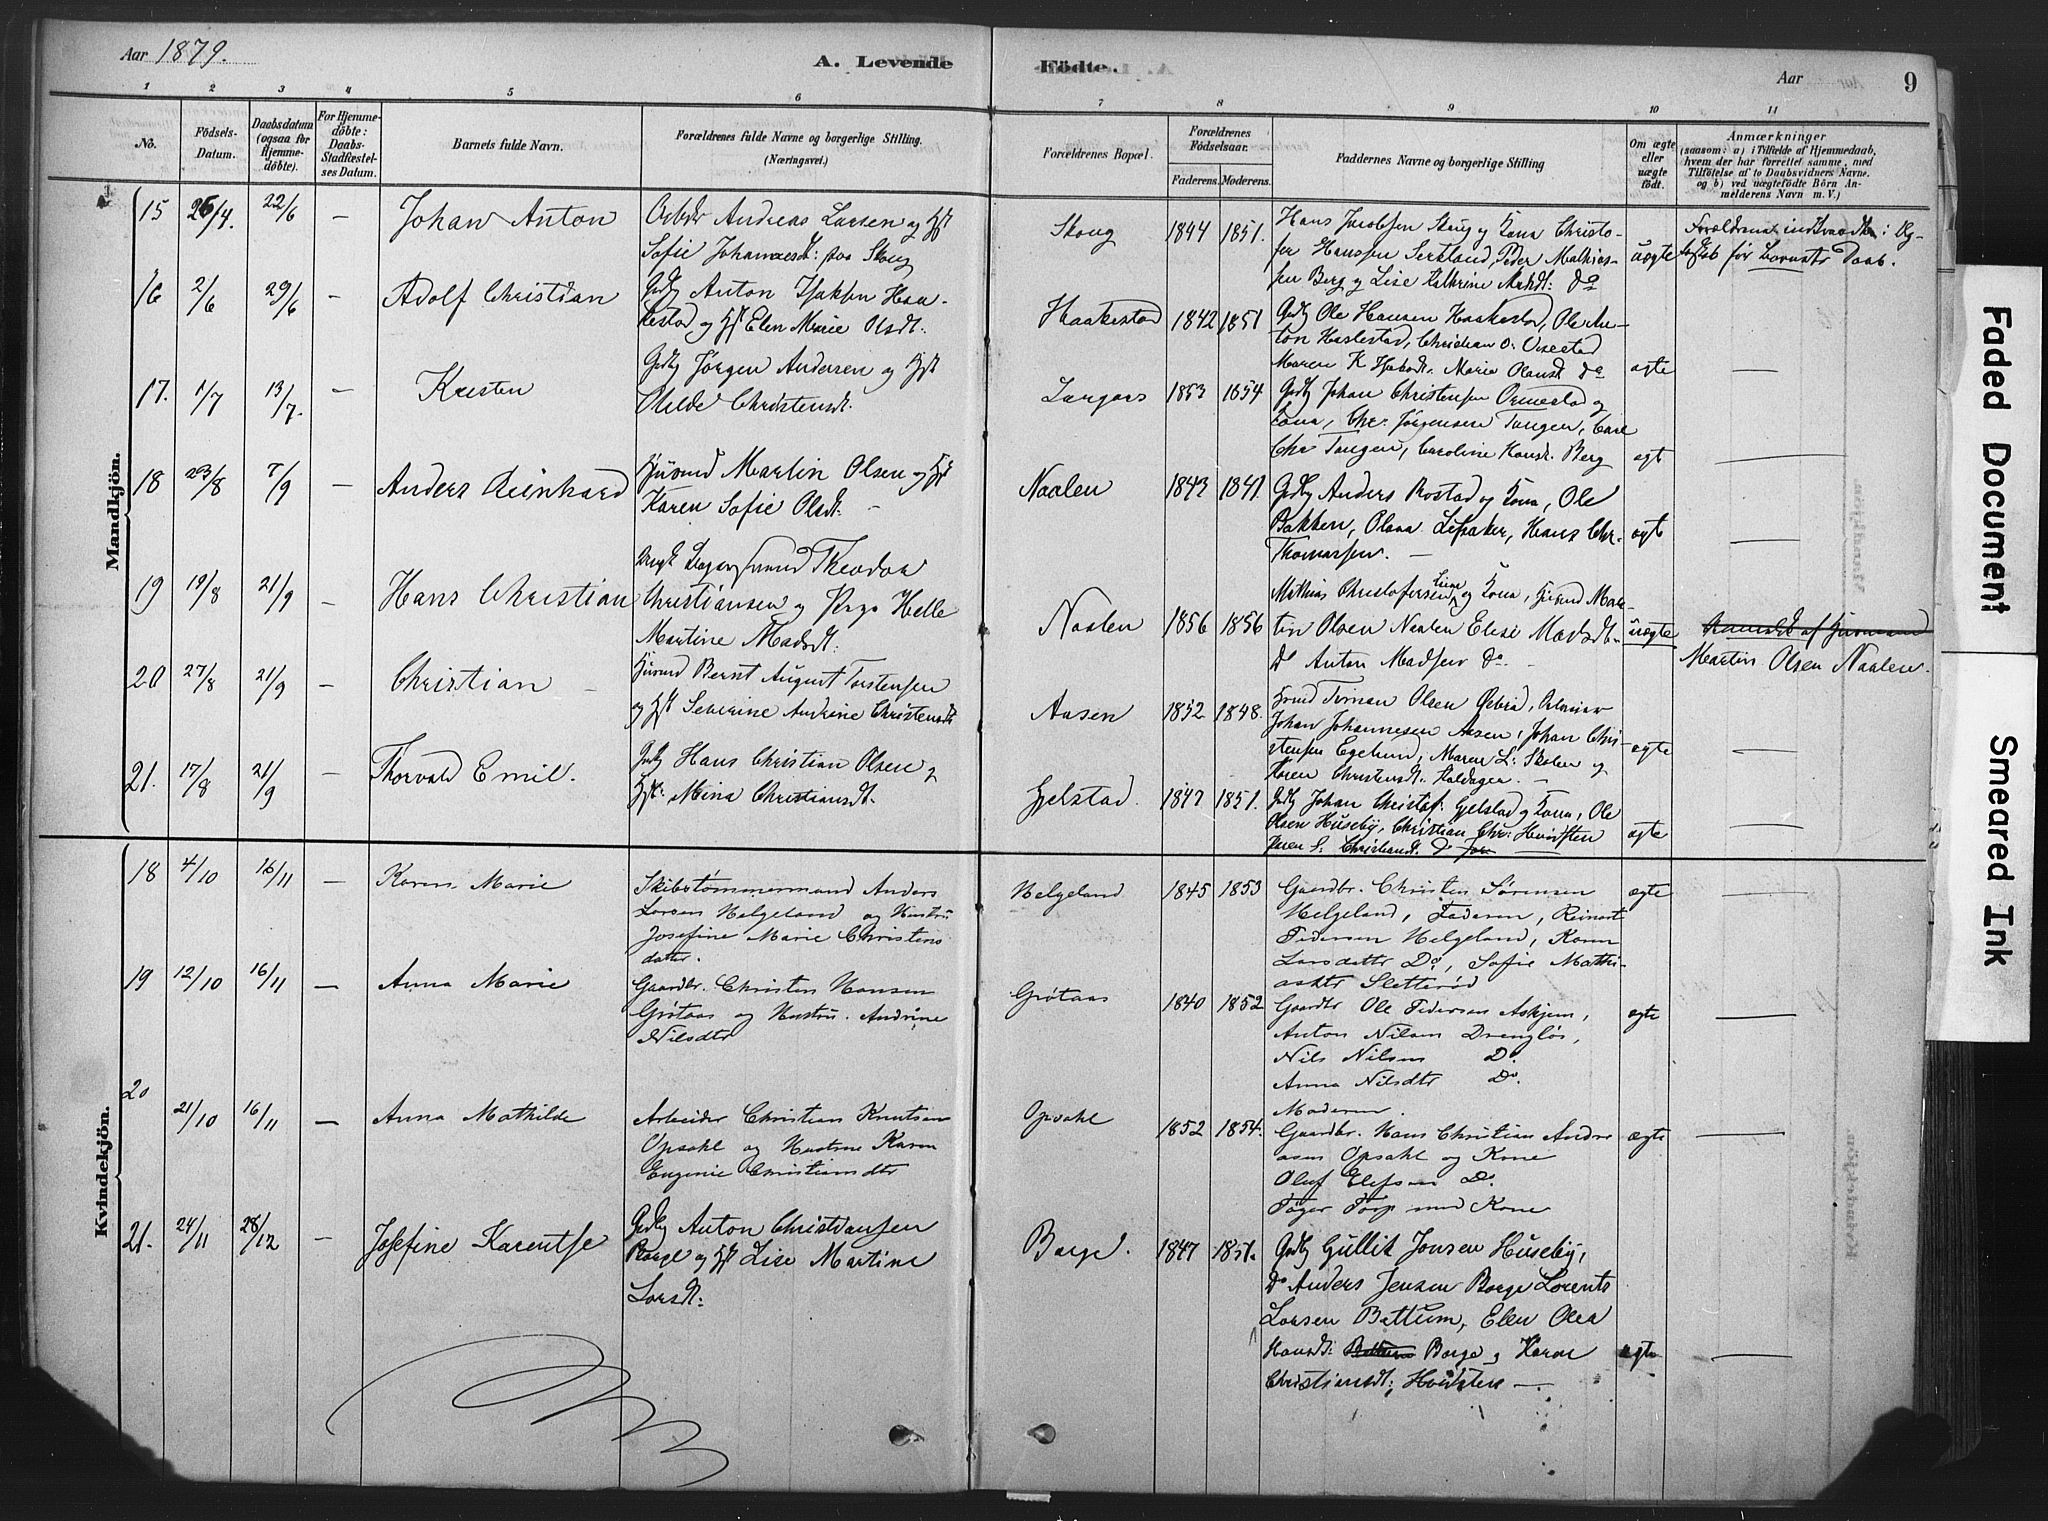 Aar 1879.
A. Levende Födte.
Aar
9
1 2 3 4 5 6 7 8 9 10 11
No.
Födsels-Datum.
Daabsdatum (ogsaa for Hjemmedöbte).
For Hjemmedöbte: Daabs-Stadfæstelses Datum.
Barnets fulde Navn.
Forældrenes fulde Navne og borgerlige Stilling.
(Næringsvei.)
Forældrenes Bopæl.
Forældrenes Födselsaar.
Faderens. Moderens.
Faddernes Navne og borgerlige Stilling
Om ægte eller uægte födt.
Anmærkninger
(saasom: a) i Tilfælde af Hjemmedaab,
hvem der har forrettet samme, med
Tilföielse af to Daabsvidners Navne.
og b) ved uægtefödte Börn Anmelderens Navn m. V.)
Mandkjön.
15 26/4. 22/6 — Johan Anton
Andreas Larsen og
Sofie Johannesdt: paa Skoug
Skoug 1844 1851.
Hans Jacobsen Skoug og Kona Christo-
fer Hanssen Serkland, Peder Mathias-
sen Berg og Lise Kathrine do
uægte
Forældrene
før Barnets Daab.
16 2/6 29/6 — Adolf Christian
Gdbr Anton Isaksen Haa-
kestad og Hst Elen Marie Olsdt.
Haakestad 1842 1851
Gdbr Ole Hansen Haakestad, Ole An-
ton Haslestad, Christian O.
Maren K Marie Olausdt do
ægte —
17. 1/7 13/7. — Kristen
Gdbr Jørgen Andersen og Hst
Olelde Christensdt.
1853 1854
Gdbr Johan Christensen Ormestad og
Kona, Chr. Jørgensen Tangen, Carl
Chr Tangen, Caroline Hansdt. Berg
ægt —
18 23/8 7/9 — Anders Reinhard
Husmd Martin Olsen og Hst
Karen Sofie Olsdt. —
Naalen 1843 1841.
Gdbr Anders Rostad og Kona, Ole
Bakken, Olava Lefsaker, Hans Chr.
Thomassen. —
ægte —
19 19/8 21/9 — Hans Christian
Ungk Theodor
Christiansen og Pige Helle
Martine Madsdt:
Naalen 1856 1856
Mathias Christofersen og Kona, Husmd Mar-
tin Olsen Naalen Elise Madsdt.
Do Anton Madsen do —
uægte
Anmeldt af Husmand
Martin Olsen Naalen.
20 27/8 21/9 — Christian —
Husmd Bernt August Torstensen
og Hst Severine Andrine Christensdt
Aasen 1852 1848.
Husmd Timan Olsen
Johan Johannesen Aasen, Johan Chri-
stensen Egelund, Maren L. Skolen og
Karen Christensdt. Haldagen. —
ægte —
21. 17/8 21/9 — Thorvald Emil.
Gdbr Hans Christian Olsen og
Hst: Mina Christiansdt.
Gjelstad. 1847 1851.
Gdbr Johan Christof. Gjelstad og Kona, Ole
Olsen Huseby, Christian Chr: Hvidsten
Karen S. Christiansdt. do —
ægte —
Kvindekjön.
18 4/10 16/11 — Karen Marie
Skibstømmermand Anders
Larsen Helgeland og Hustru
Josefine Marie Christens
datter.
Helgeland 1845 1853
Gaardbr. Christen Sørensen
Helgeland, Faderen, Reinert
Pedersen Helgeland, Karen
Larsdatter Do, Sofie Mathi-
asdtr Sletterød
ægte —
19 12/10 16/11 — Anna Marie
Gaardbr. Christen Hansen
Grøtaas og Hustru. Andrine
Nilsdtr
Grøtaas 1840 1852
Gaardbr Ole Pedersen Askjem,
Anton Nilsen Drengløs,
Nils Nilsen Do.
Anna Nilsdtr Do.
Moderen.
ægte —
20 21/10 16/11 — Anna Mathilde
Arbeider Christian Knutsen
Opsahl og Hustru Karen
Eugenie Christiansdtr
Opsahl 1852 1854.
Gaardbr. Hans Christian Andre
asen Opsahl og Kone
Oluf Elefsen Do.
Tøger Torp med Kone
ægte —
21. 24/11 28/12 — Josefine Karentse
Gdbr Anton Christiansen
Borge og Hst Lise Martine
Larsdt:
Borge. 1847 1851.
Gdbr Gullik Jonsen Huseby,
Do Anders Jensen Borge Lorents
Larsen Battum, Elen Olea
Hansdt: Borge og Karen
Christiansdt: Hvidsten —
ægte —
Faded Document
Smeared Ink